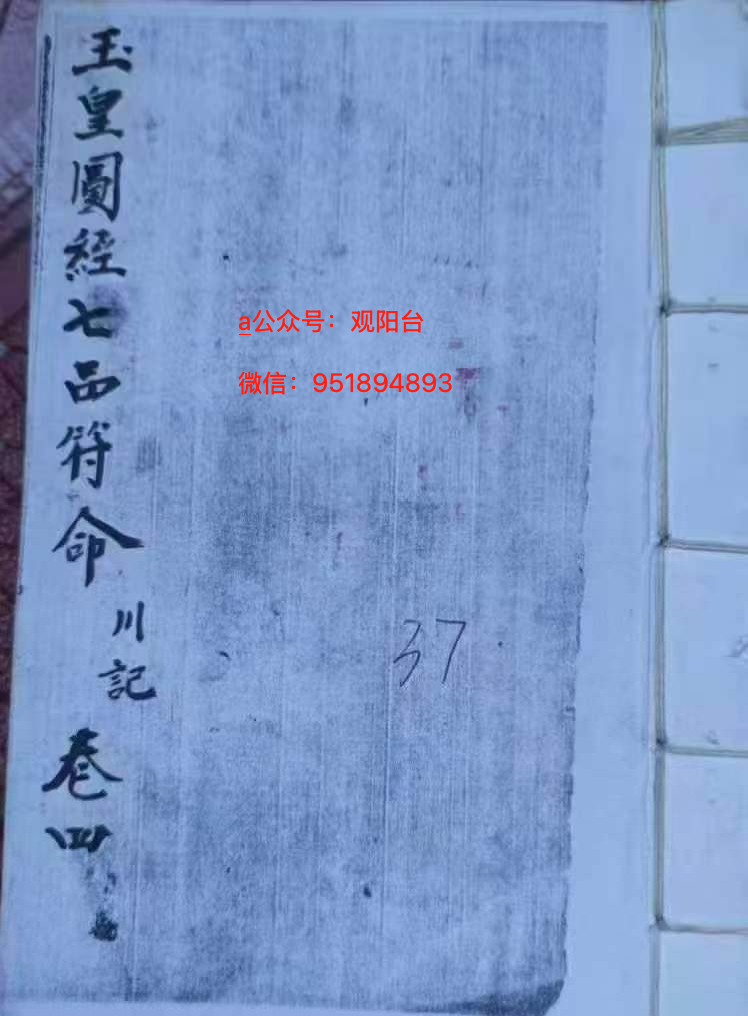 玉皇圖經七品符命
川記
卷四
a公众号：观阳台
微信：951894893
37